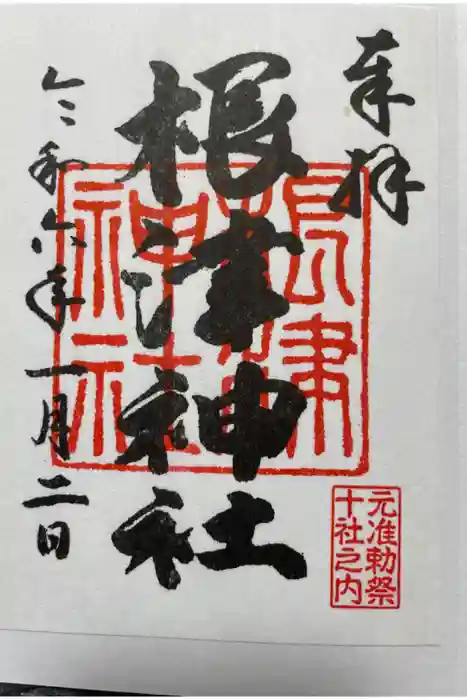 奉拝
根津神社
根津神社
元准勅祭
十社之内
令和六年一月二日